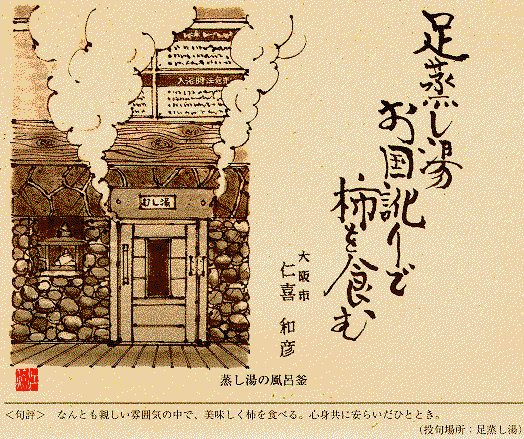 足蒸し湯
お国訛りで
柿を食む
大阪市
仁喜 和彦
むし湯
蒸し湯の風呂釜
<句評> なんとも親しい雰囲気の中で、美味しく柿を食べる。心身共に安らいだひととき。
(投句場所：足蒸し湯)